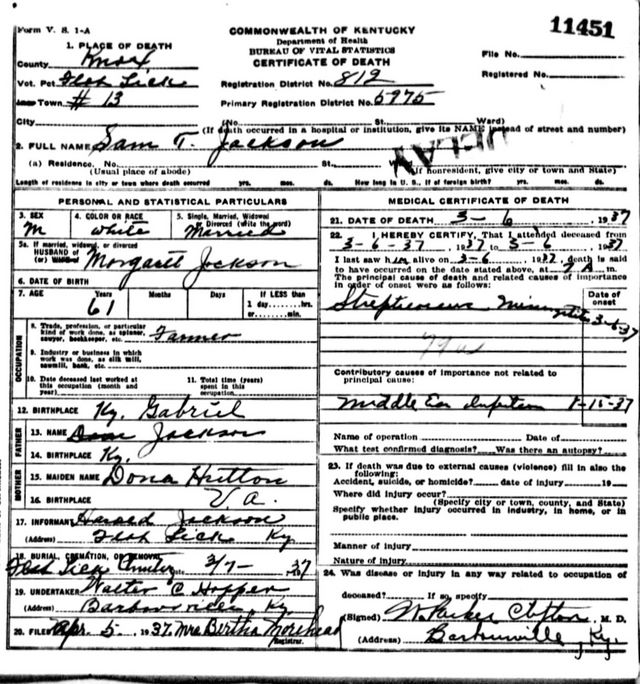 Form V. S. 1-A
COMMONWEALTH OF KENTUCKY
Department of Health
BUREAU OF VITAL STATISTICS
CERTIFICATE OF DEATH
11451
1. PLACE OF DEATH
County Knox
Vot. Pct. Flat Lick
Town # 13
City
File No.
Registered No.
Registration District No. 812
Primary Registration District No. 5975
(No. St. Ward)
(If death occurred in a hospital or institution, give its NAME instead of street and number)
2. FULL NAME Sam T. Jackson
(a) Residence. No. St.
(Usual place of abode) (If nonresident, give city or town and State)
Length of residence in city or town where death occurred yrs. mos. ds. How long in U. S., if of foreign birth? yrs. mos. ds.
PERSONAL AND STATISTICAL PARTICULARS
3. SEX M
4. COLOR OR RACE white
5. Single, Married, Widowed or Divorced (write the word) Married
5a. If married, widowed, or divorced
HUSBAND OF
(or) Margaret Jackson
6. DATE OF BIRTH
7. AGE Years Months Days If LESS than
61 1 day......hrs.
or......min.
OCCUPATION
8. Trade, profession, or particular
kind of work done, as spinner,
sawyer, bookkeeper, etc. Farmer
9. Industry or business in which
work was done, as silk mill,
sawmill, bank, etc.
10. Date deceased last worked at
this occupation (month and
year)
11. Total time (years)
spent in this
occupation
12. BIRTHPLACE Ky.
FATHER
Gabriel
13. NAME Jackson
14. BIRTHPLACE Ky.
MOTHER
15. MAIDEN NAME Dona Hutton
16. BIRTHPLACE Va.
17. INFORMANT Harold Jackson
(Address) Flat Lick Ky
18. BURIAL, CREMATION, OR REMOVAL
Flat Lick 3/7- 37
19. UNDERTAKER Walter C Hopper
(Address) Barbourville, Ky
20. FILED Apr. 5, 1937. Mrs Bertha Morehead
Registrar.
MEDICAL CERTIFICATE OF DEATH
21. DATE OF DEATH 3-6, 1937
22. I HEREBY CERTIFY, That I attended deceased from
3-6-37, 1937 to 3-6, 1937
I last saw him alive on 3-6, 1937, death is said
to have occurred on the date stated above, at 7 A m.
The principal cause of death and related causes of importance
in order of onset were as follows:
Date of
onset
Streptococcus Meningitis 3-6-37
Contributory causes of importance not related to
principal cause:
Middle Ear 1-15-37
Name of operation Date of
What test confirmed diagnosis? Was there an autopsy?
23. If death was due to external causes (violence) fill in also the
following:
Accident, suicide, or homicide? date of injury 19
Where did injury occur?
(Specify city or town, county, and State)
Specify whether injury occurred in industry, in home, or in
public place.
Manner of injury
Nature of injury
24. Was disease or injury in any way related to occupation of
deceased? If so, specify
(Signed) Parker M. D.
(Address) Barbourville, Ky.